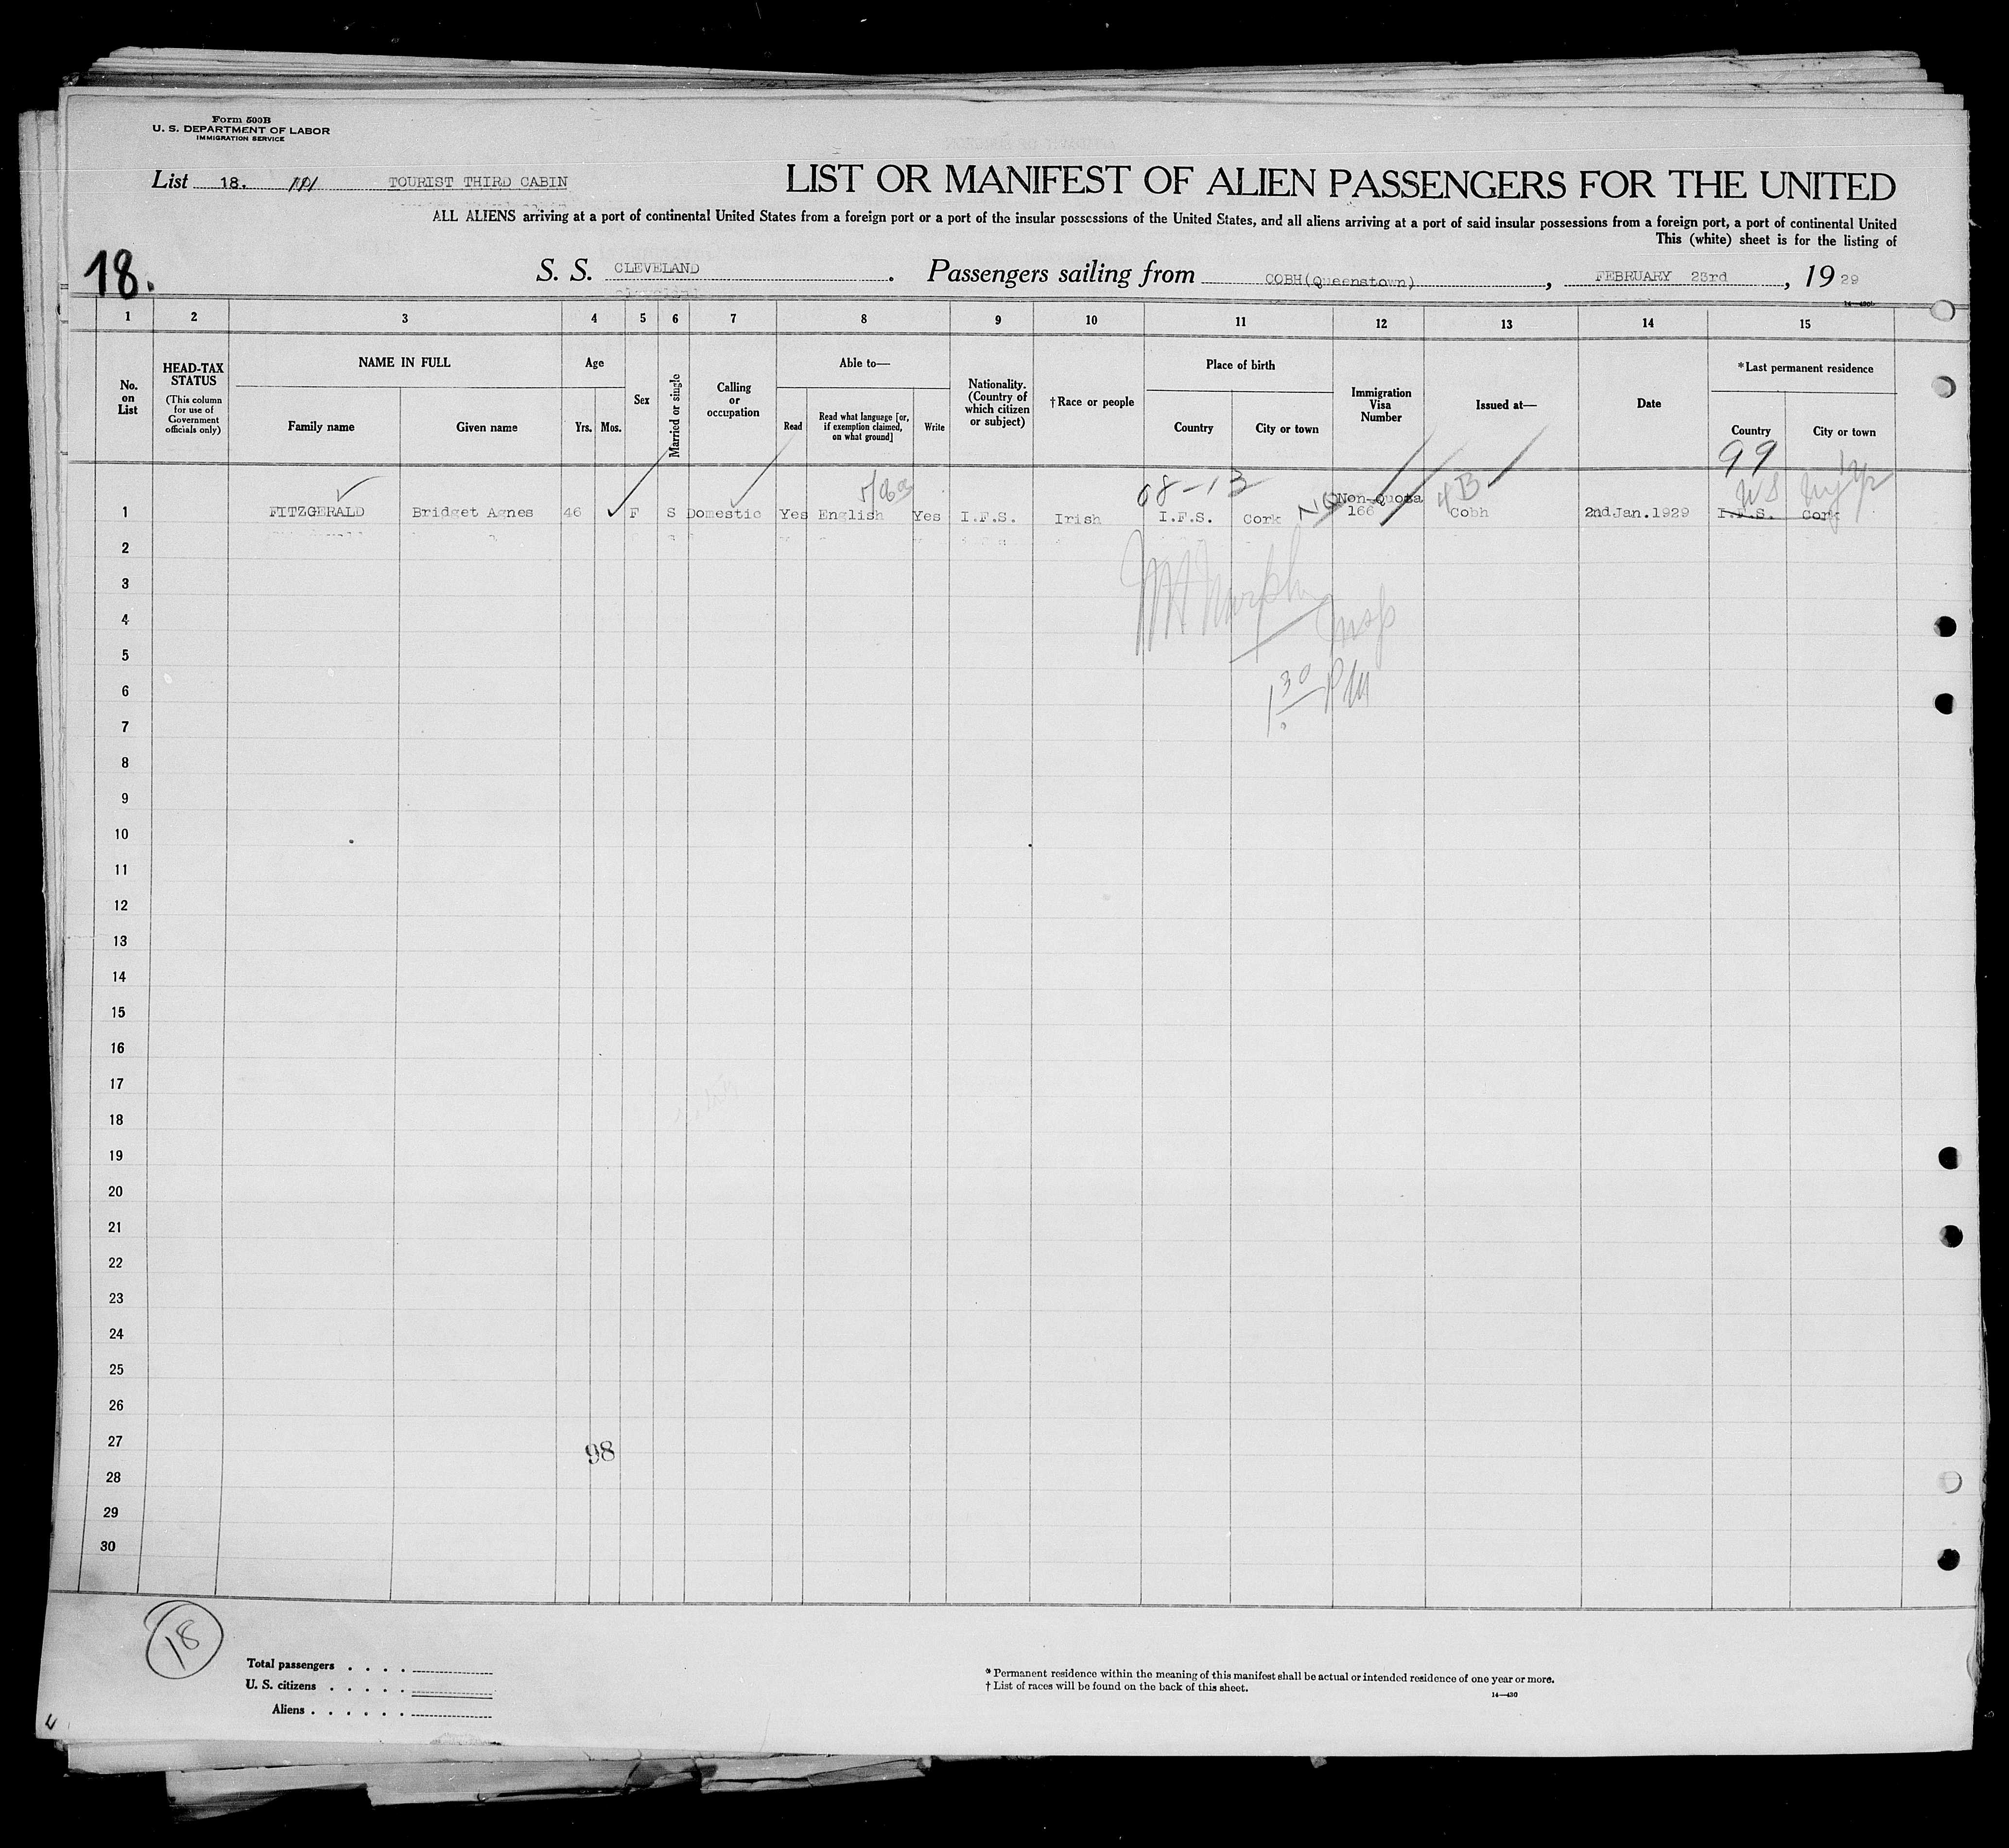 Form 500B
U. S. DEPARTMENT OF LABOR
IMMIGRATION SERVICE
List 18. TOURIST THIRD CABIN
LIST OR MANIFEST OF ALIEN PASSENGERS FOR THE UNITED
ALL ALIENS arriving at a port of continental United States from a foreign port or a port of the insular possessions of the United States, and all aliens arriving at a port of said insular possessions from a foreign port, a port of continental United
This (white) sheet is for the listing of
18.
S. S. CLEVELAND. Passengers sailing from COBH(Queenstown), FEBRUARY 23rd, 1929
14—430
1 2 3 4 5 6 7 8 9 10 11 12 13 14 15
No. on List
HEAD-TAX STATUS
(This column for use of Government officials only)
NAME IN FULL
Family name Given name
Age
Yrs. Mos.
Sex
Married or single
Calling or occupation
Able to—
Read
Read what language [or, if exemption claimed, on what ground]
Write
Nationality. (Country of which citizen or subject)
†Race or people
Place of birth
Country City or town
Immigration Visa Number
Issued at—
Date
*Last permanent residence
Country City or town
99
08-13
4B
US
1 FITZGERALD Bridget Agnes 46 F S Domestic Yes English Yes I.F.S. Irish I.F.S. Cork Non-Quota 166 Cobh 2nd Jan.1929 I.F.S. Cork
2
3
Murphy
4
Insp
5
6
1:30 PM
7
8
9
10
11
12
13
14
15
16
17
18
19
20
21
22
23
24
25
26
27
98
28
29
30
18
Total passengers . . . .
U. S. citizens . . . . .
Aliens . . . . . .
* Permanent residence within the meaning of this manifest shall be actual or intended residence of one year or more.
† List of races will be found on the back of this sheet.
14—430